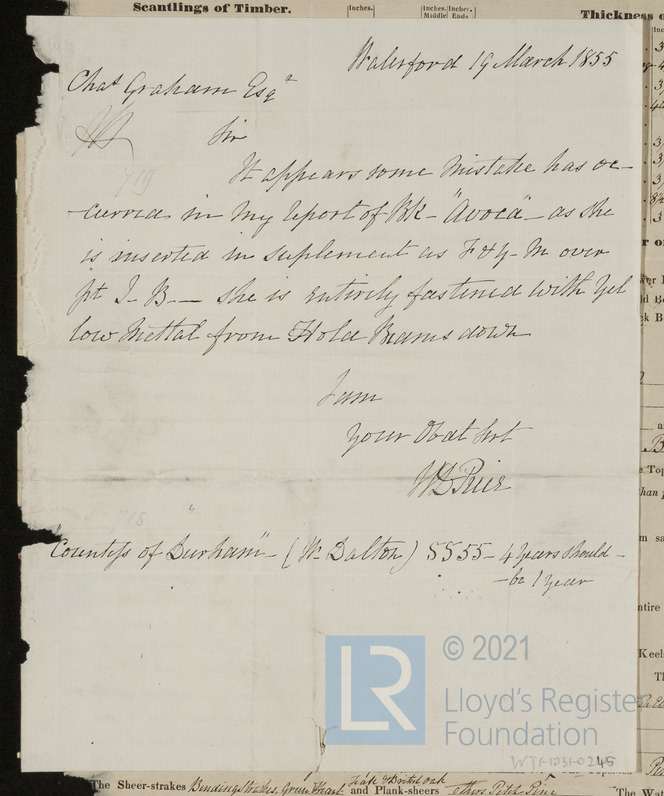 Scantlings of Timber.
Inches.
Inches. Inches.
Middle Ends
Thickness o
Waterford 19 March 1855
Chas Graham Esqr
Sir
719
It appears some Mistake has oc-
-curred in my report of Bk - "Avoca" - as she
is inserted in suplement as F & Y. M over
pt I. B. — she is entirely fastened with Yel
low Mettal from Hold Beams down
I am
Your Obdt Sert
718
"Countess of Durham" - (Wm Dalton) SS55 - 4 years should -
- be 1 year
© 2021
LR
Lloyd's Register
Foundation
WTF-1231-0245
The Sheer-strakes Binding Strakes, Green Heart and Plank-sheers
The Wat